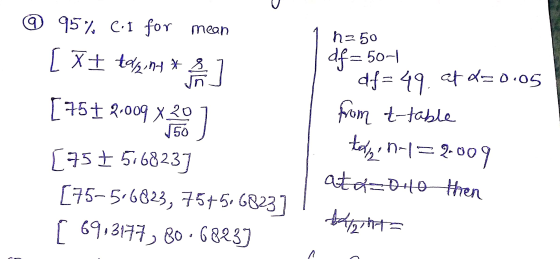 (a) 95% C.I for mean
[ X̄ ± tα/2, n-1 * s/√n ]
[75 ± 2.009 × 20/√50 ]
[75 ± 5.6823]
[75-5.6823, 75+5.6823]
[ 69.3177, 80.6823]
n=50
df=50-1
df=49. at α=0.05
from t-table
tα/2, n-1 = 2.009
at α=0.10 then
tα/2, n-1 =